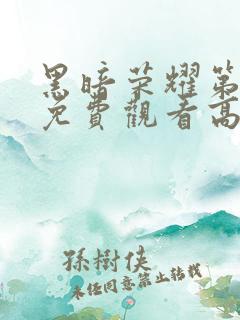 黑暗荣耀第
免費觀看高
孫樹俠
未经同意禁止转载